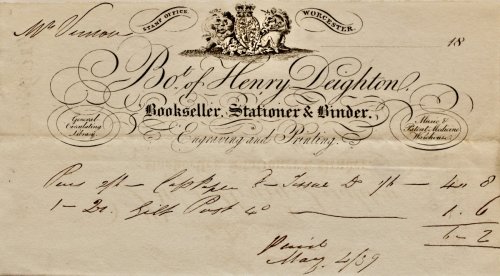 STAMP OFFICE, WORCESTER.
Mr Vernon 18
Bot. of Henry Deighton,
Bookseller, Stationer & Binder,
General Circulating Library
Engraving and Printing.
Music & Patent Medicine Warehouse
Cap Paper & Tissue Do 4 8
1 - Do Gilt Post 4o 1. 6
6 - 2
Paid
May 4/39